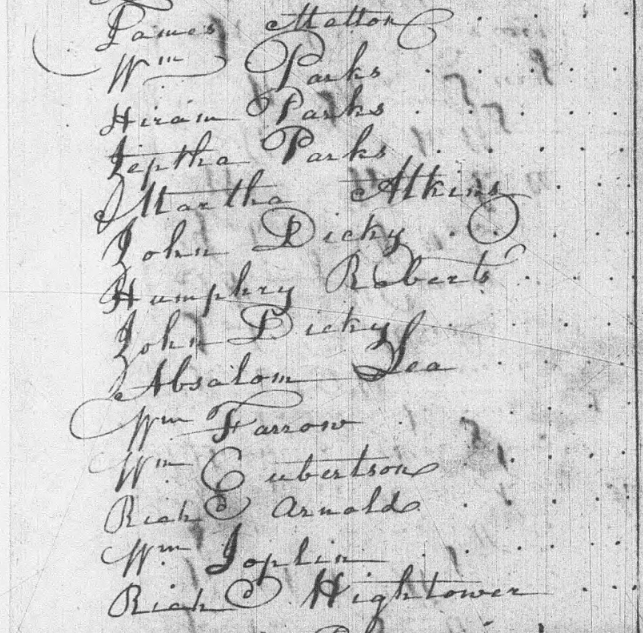 James Matton
Wm Parks
Hiram Parks
Jeptha Parks
Martha Atkins
John Dicky
Humphry Roberts
John Dicky
Absalom Lea
Wm Farrow
Wm Cubertson
Richd Arnold
Wm Joplin
Richd Hightower